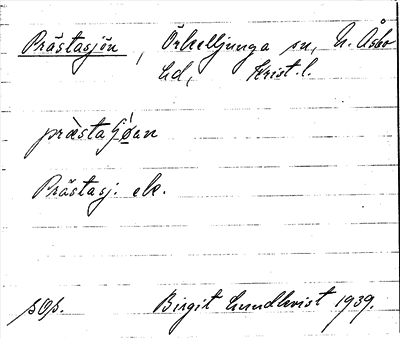 Prästasjön, Örkelljunga sn, N. Åsbo
hd, Krist. l.
Prästasj. ek.
sOp. Birgit Lundkvist 1939.